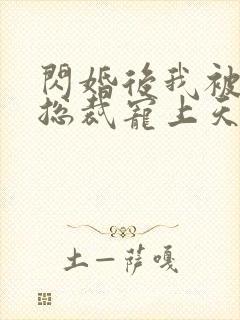 閃婚後我被
總裁寵上天
土一薩嘎